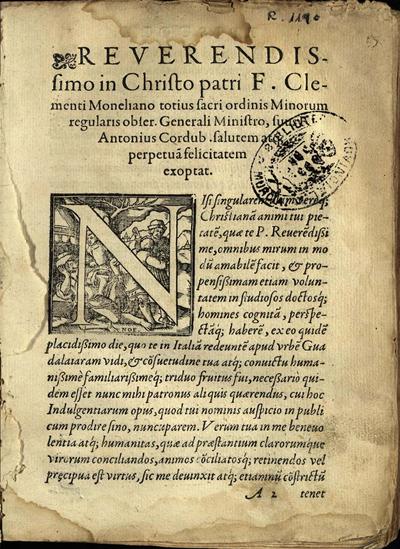 R. 1190
REVERENDIS-
simo in Christo patri F. Cle-
menti Moneliano totius sacri ordinis Minorum
regularis obser. Generali Ministro, su
Antonius Cordub. salutem at
perpetuā felicitatem
exoptat.
NIsi singularem
Christianā animi tui pie-
tatē, quæ te P. Reuerēdissi
me, omnibus mirum in mo
dū amabilē facit, & pro-
pensissimam etiam volun-
tatem in studiosos doctosq;
homines cognitā, perspe-
ctāq; haberē, ex eo quidē
placidissimo die, quo te in Italiā redeuntē apud vrbē Gua
dalaiaram vidi, & cōsuetudine tua atq; conuictu huma-
nissimè familiarissimeq; triduo fruitus fui, necessario qui-
dem esset nunc mihi patronus aliquis quærendus, cui hoc
Indulgentiarum opus, quod tui nominis auspicio in publi
cum prodire sino, nuncuparem. Verum tua in me beneuo
lentia atq; humanitas, quæ ad præstantium clarorumque
virorum conciliandos, animos cōciliatosq; retinendos vel
præcipua est virtus, sic me deuinxit atq; etiamnū cōstrictū
A 2 tenet
NOE